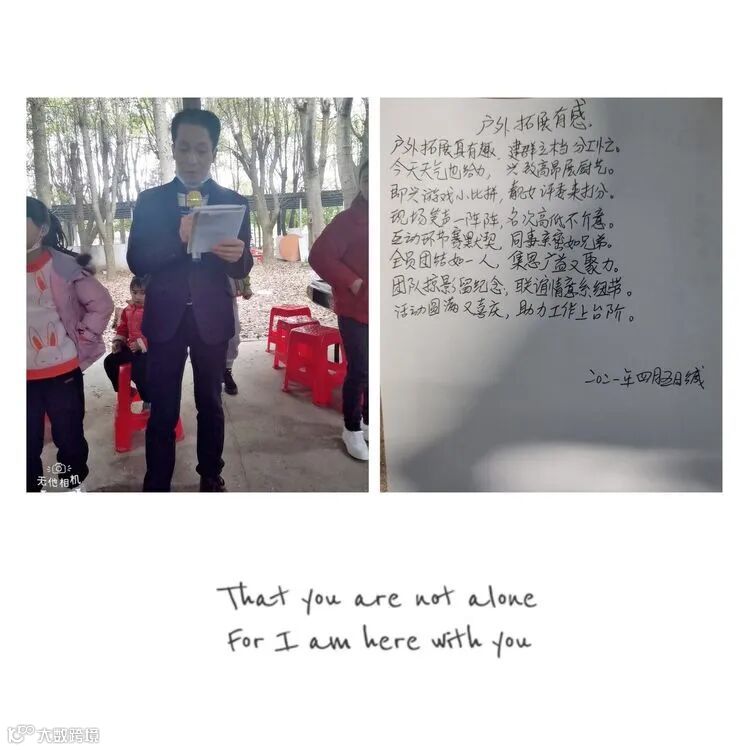 户外拓展有感
户外拓展真有趣,建群立档分工忙。
今天天气也给力,兴致高昂展厨气。
即兴游戏小比拼,靓女评委来打分。
现场笑声一阵阵,名次高低不介意。
互动环节赛默契,同事亲密如兄弟。
全员团结如一人,集思广益又聚力。
团队掠影留纪念,联谊情意系纽带。
活动圆满又喜庆,助力工作上台阶。
二〇二一年四月五日
无他相机
That you are not alone
For I am here with you
大数跨境